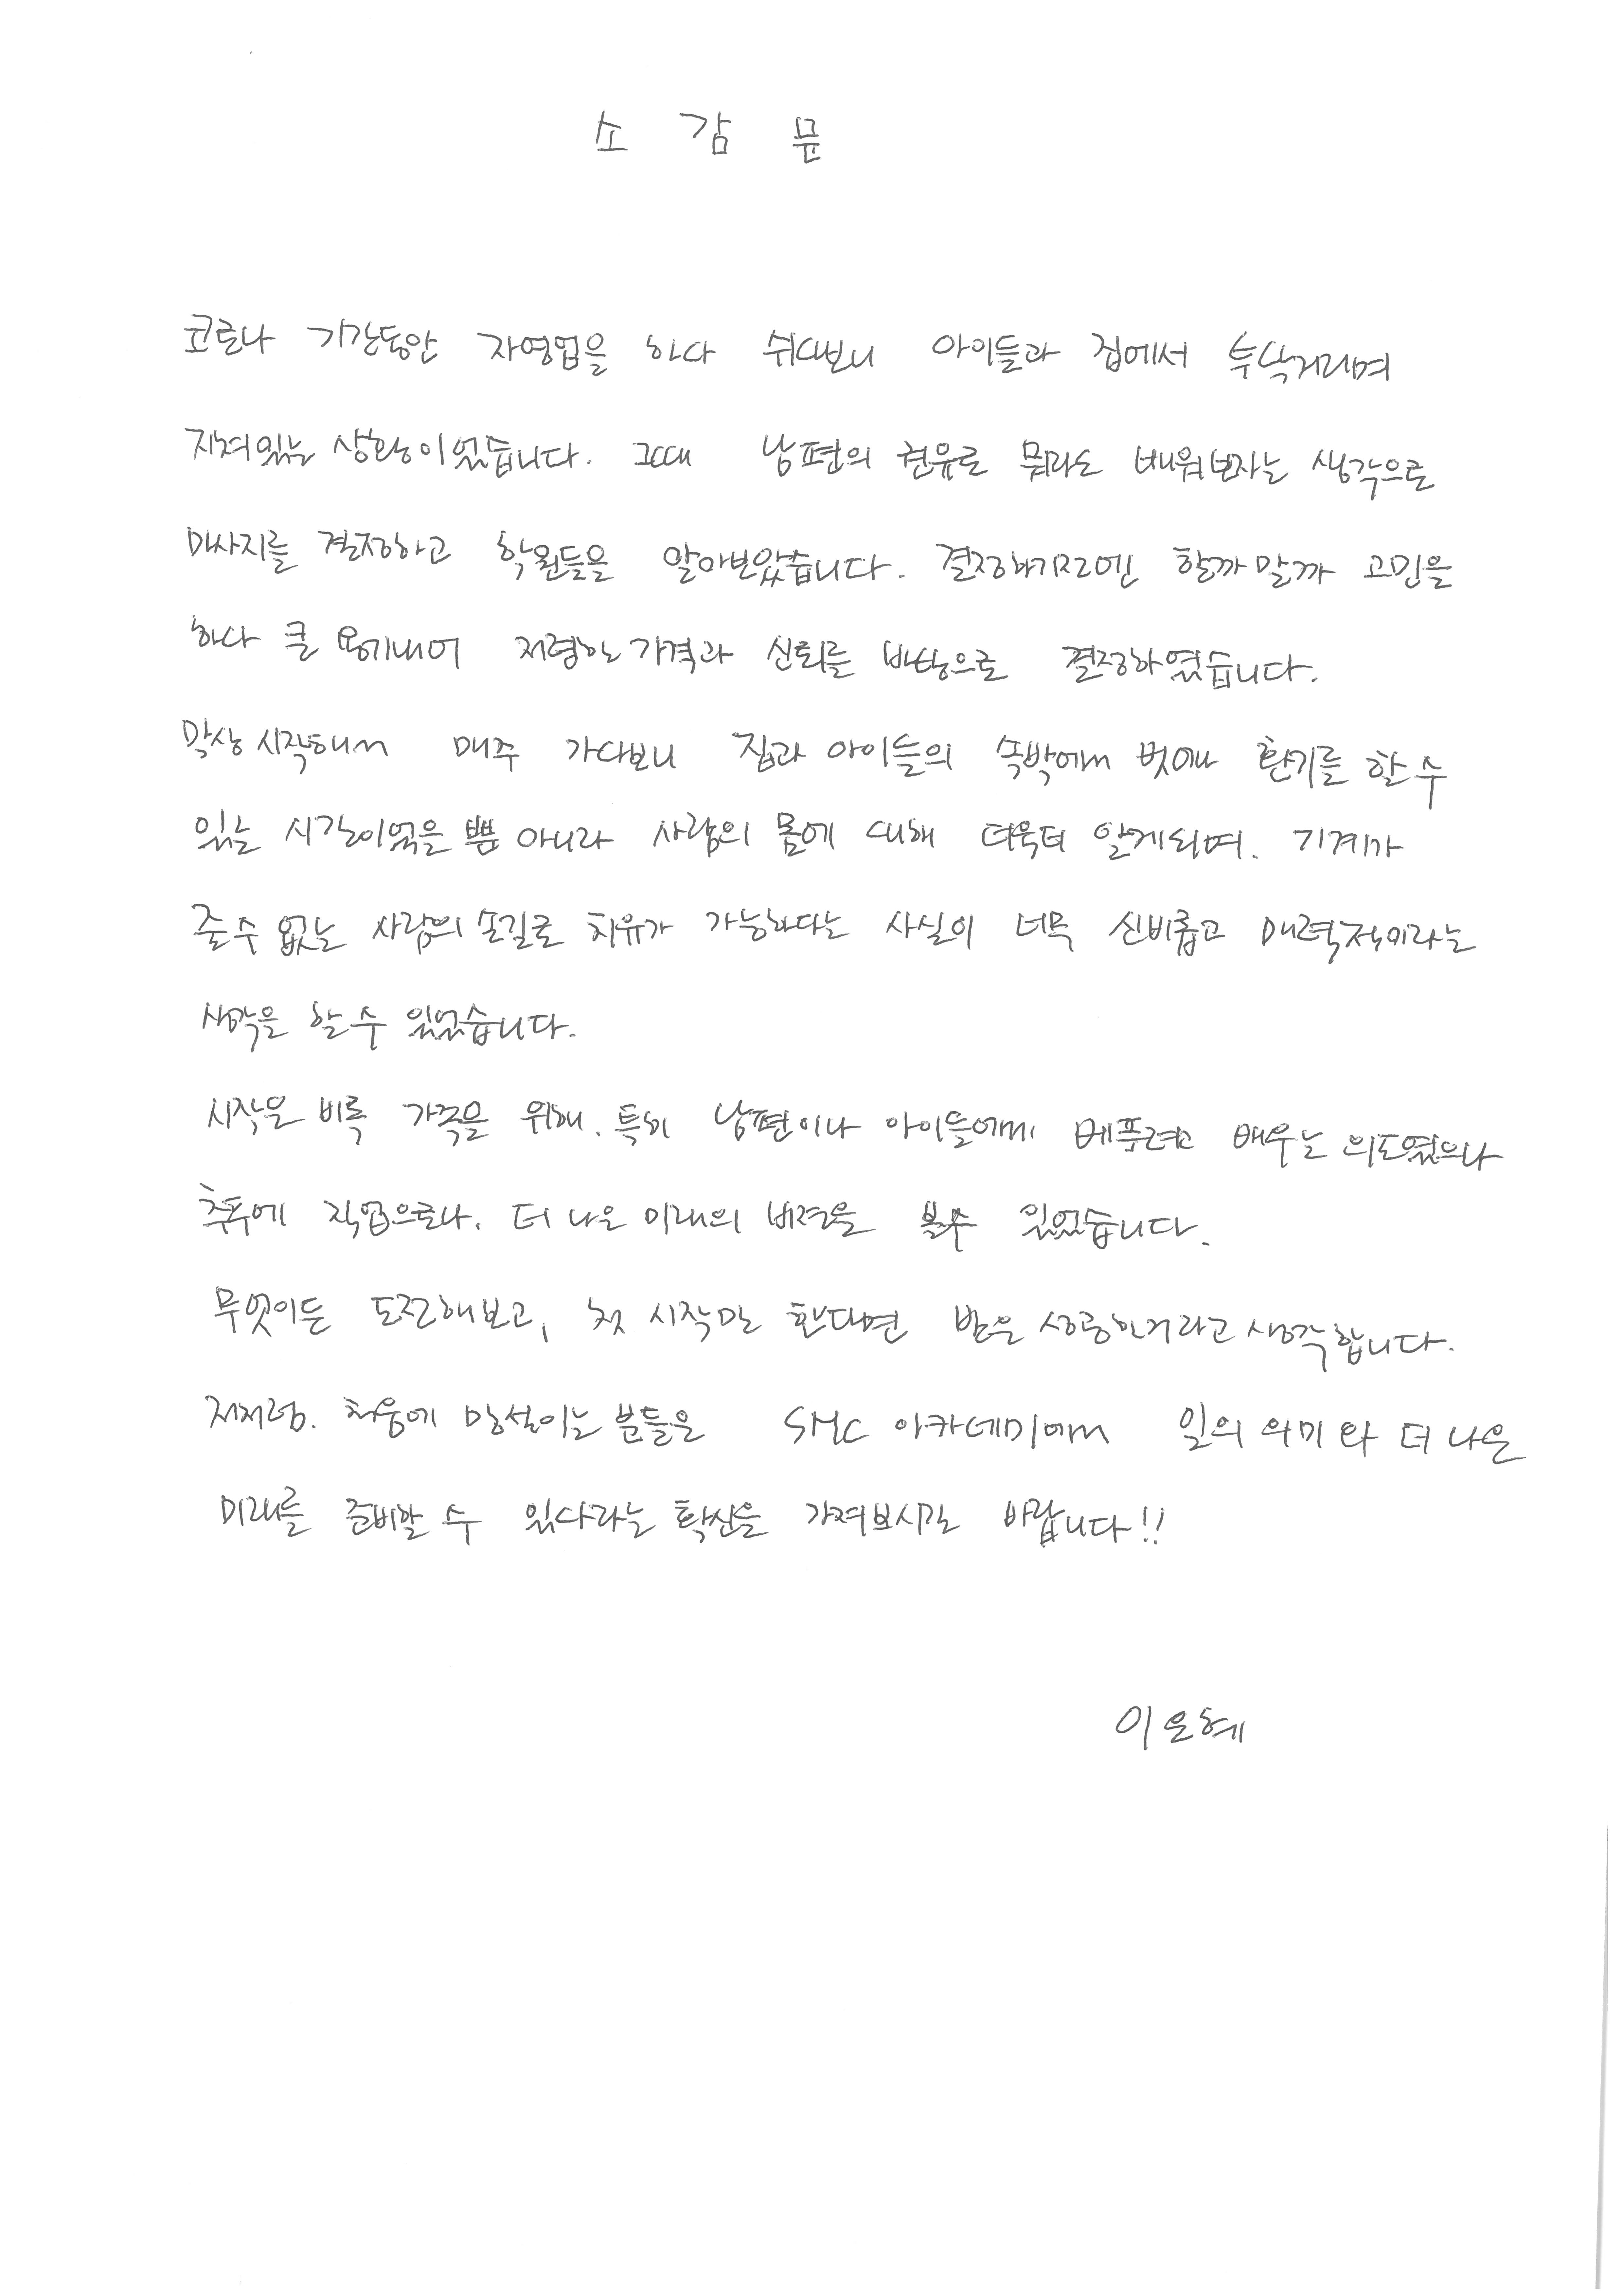 소 감 문
코로나 기간동안 자영업을 하다 쉬다보니 아이들과 집에서 투닥거리며
지쳐있는 상황이었습니다. 그때 남편의 권유로 뭐라도 배워보자는 생각으로
마사지를 결정하고 학원들을 알아보았습니다. 결정하기전엔 할까말까 고민을
하다 큰 용기내어 저렴한 가격과 신뢰를 바탕으로 결정하였습니다.
막상 시작해서 매주 가다보니 집과 아이들의 속박에서 벗어나 환기를 할 수
있는 시간이었을 뿐 아니라 사람의 몸에 대해 더욱더 알게되며. 기계가
줄 수 없는 사람의 손길로 치유가 가능하다는 사실이 너무 신비롭고 매력적이라는
생각을 할 수 있었습니다.
시작은 비록 가족을 위해. 특히 남편이나 아이들에게 베풀려고 배우는 의도였으나
추후에 직업으로나. 더 나은 미래의 비젼을 볼수 있었습니다.
무엇이든 도전해보고, 첫 시작만 한다면 반은 성공한거라고 생각합니다.
저처럼. 처음에 망설이는 분들은 SMC 아카데미에서 일의 의미와 더 나은
미래를 준비할 수 있다라는 확신을 가져보시길 바랍니다!!
이은혜